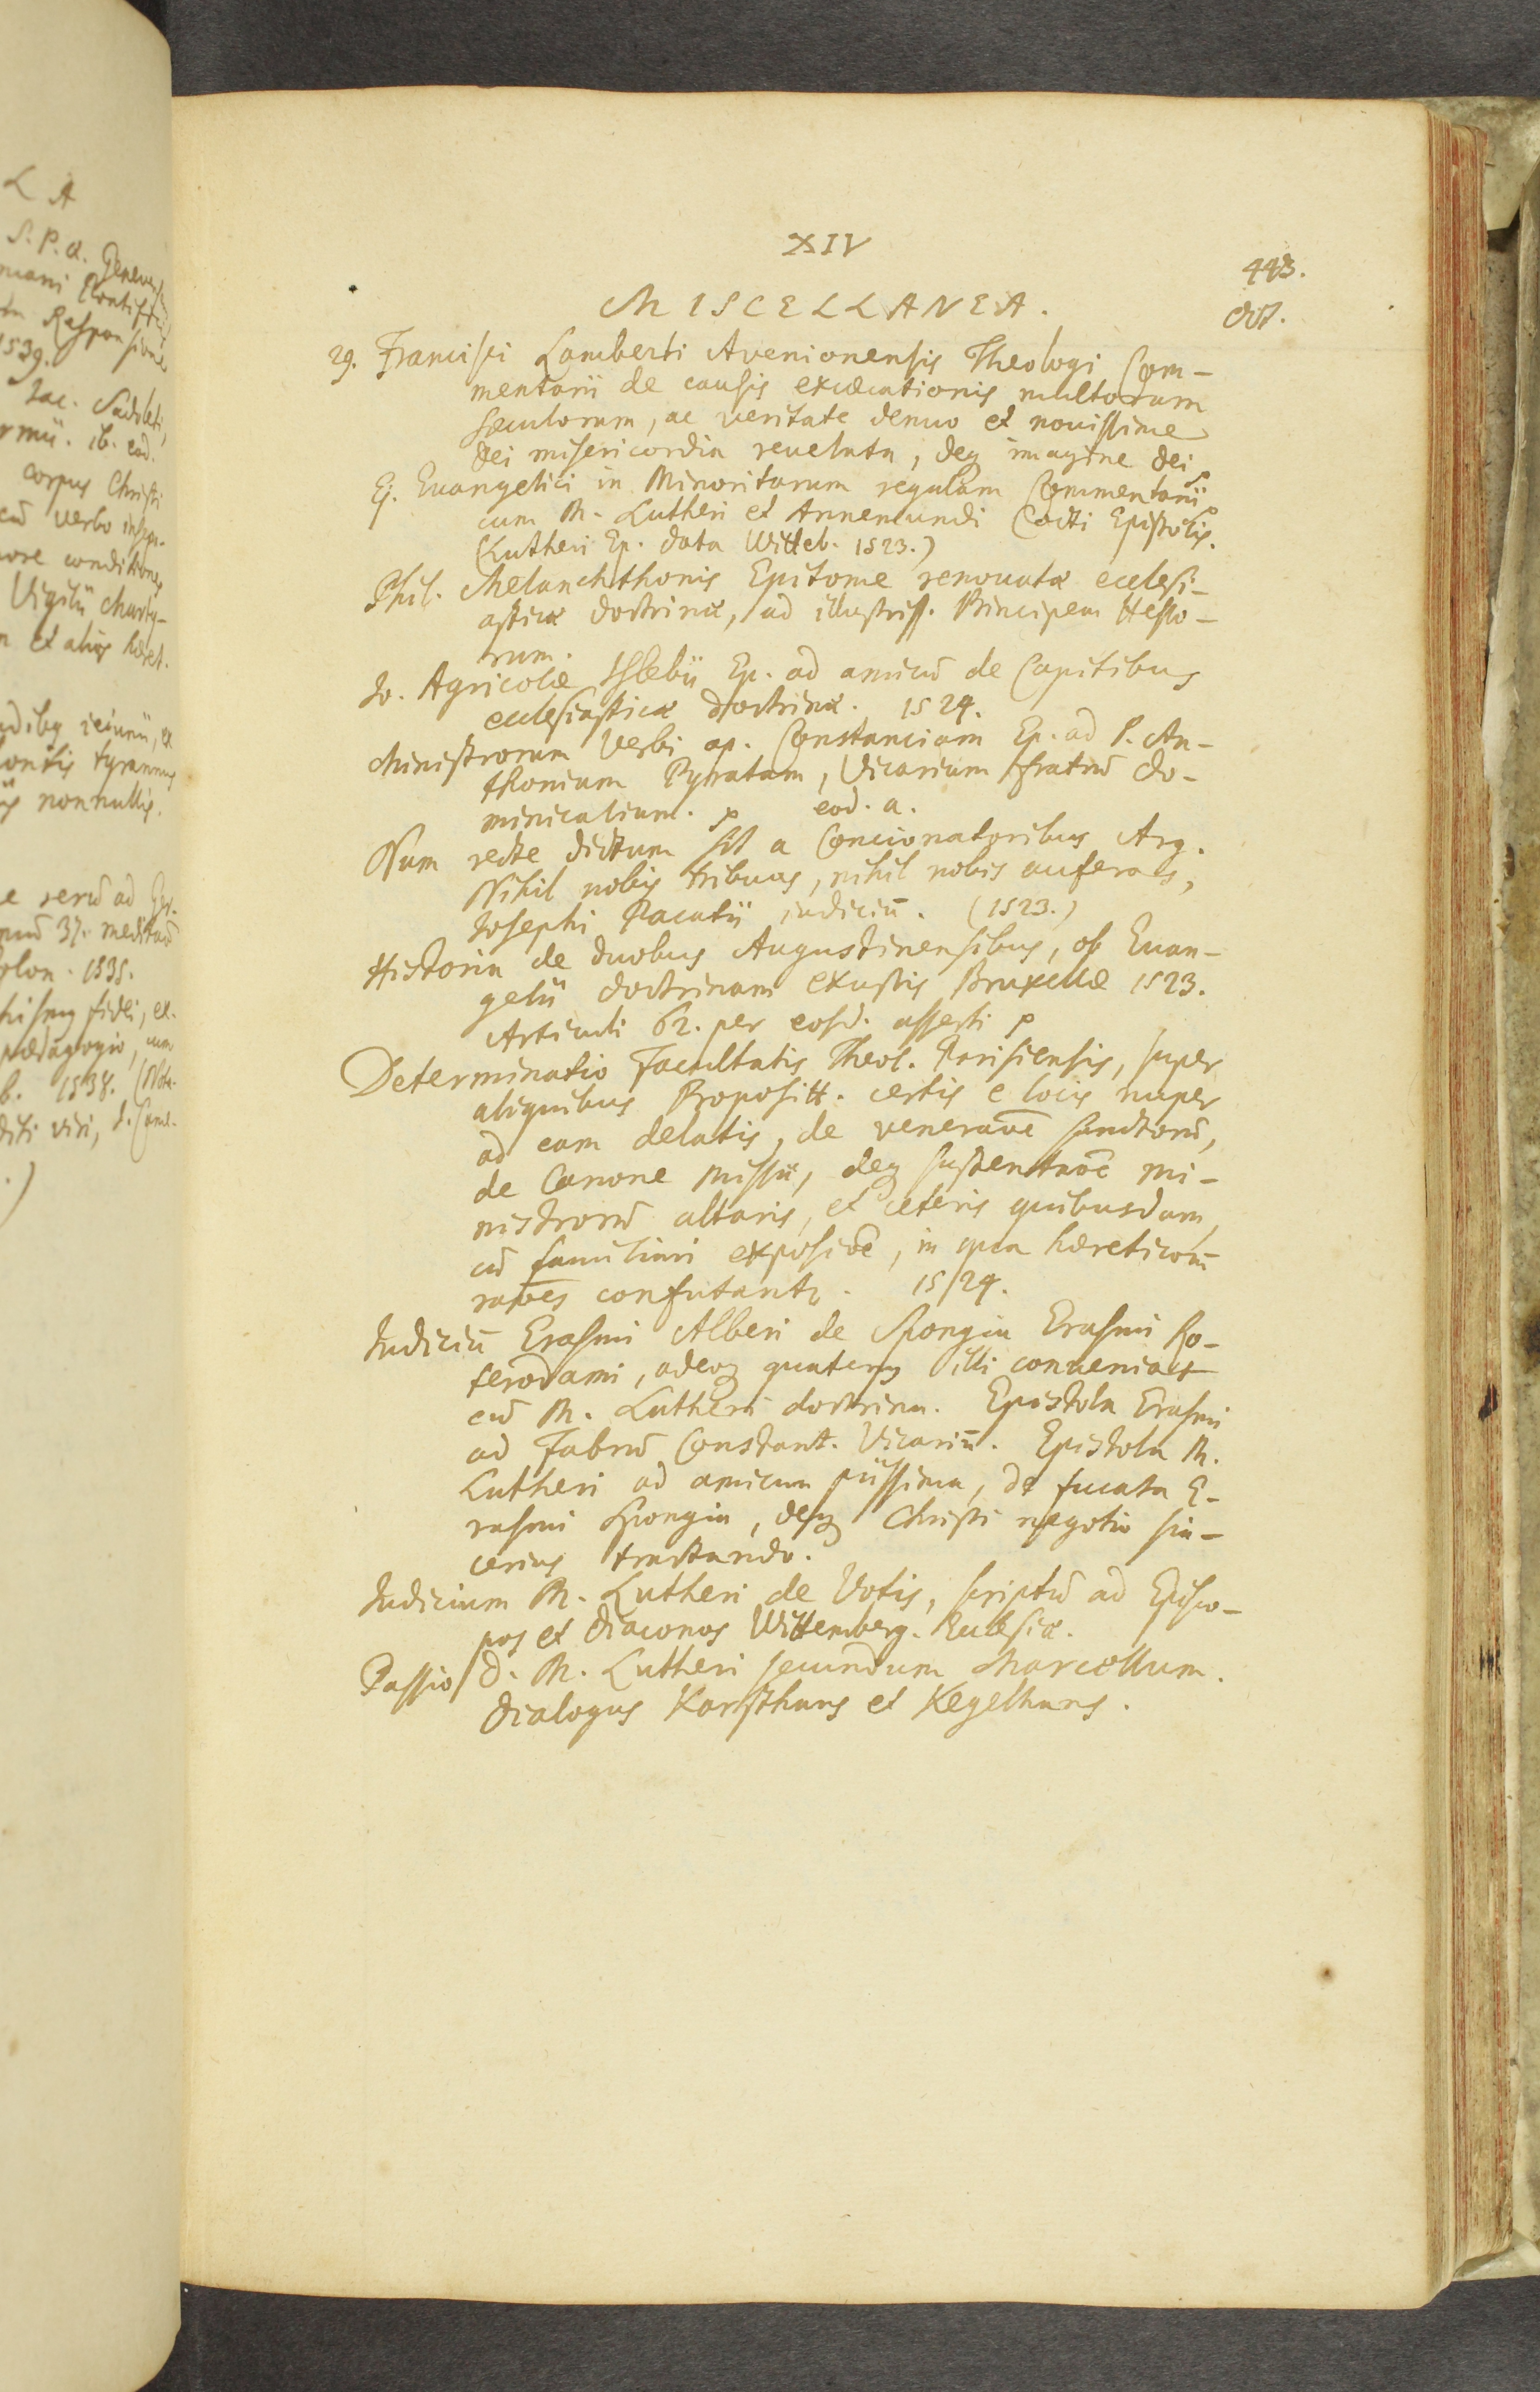 XIV
443.
MISCELLANEA.
Oct.
29. Francisci Lamberti Avenionensis Theologi Com-
mentarii de causis excæcationis multorum
sæculorum, ac veritate denuo et nouissime
Dei misericordia reuelata, deq imagine Dei p
Ej. Euangelici in Minoritarum regulam Commentarii
cum M. Lutheri et Annemundi Cocti Epistolis. p
(Lutheri Ep. data Witteb. 1523.)
Phil. Melanchthonis Epitome renouatæ ecclesi-
asticæ doctrinæ, ad illustriss. Principem Hesso-
rum.
Io. Agricolæ Islebii Ep. ad amicū de Capitibus
ecclesiasticæ doctrinæ. 1524.
Ministrorum Verbi ap. Constanciam Ep. ad P. An-
thonium Pyratam, Vicarium fratrū Do-
minicalium. p eod. a.
Num recte dictum sit a Concionatoribus Arg.
Nihil nobis tribuas, nihil nobis auferas,
Iosephi Pacatii iudiciū. (1523.)
Historia de duobus Augustinensibus, ob Euan-
gelii doctrinam exustis Bruxellæ 1523.
Articuli 62. per eosd. asserti p
Determinatio Facultatis Theol. Parisiensis, super
aliquibus Propositt. certis e locis nuper
ad eam delatis, de veneraōe sanctorū,
de Canone Missæ, deq sustentaōe mi-
nistrorū altaris, et ceteris quibusdam,
cū familiari exposiōe, in qua hæreticorū
raōes confutantr. 1524.
Iudiciū Erasmi Alberi de Spongia Erasmi Ro-
terodami, adeoq quatenus illi conueniat
cū M. Lutheri doctrina. Epistola Erasmi
ad Fabrū Constant. Vicariū. Epistola M.
Lutheri ad amicum piissima, de fucata E-
rasmi Spongia, deq Christi negotio sin-
cerius tractando.
Iudicium M. Lutheri de Votis, scriptū ad Episco-
pos et Diaconos Wittemberg. Ecclesiæ.
Passio D. M. Lutheri secundum Marcellum.
Dialogus Karsthans et Kegelhans.